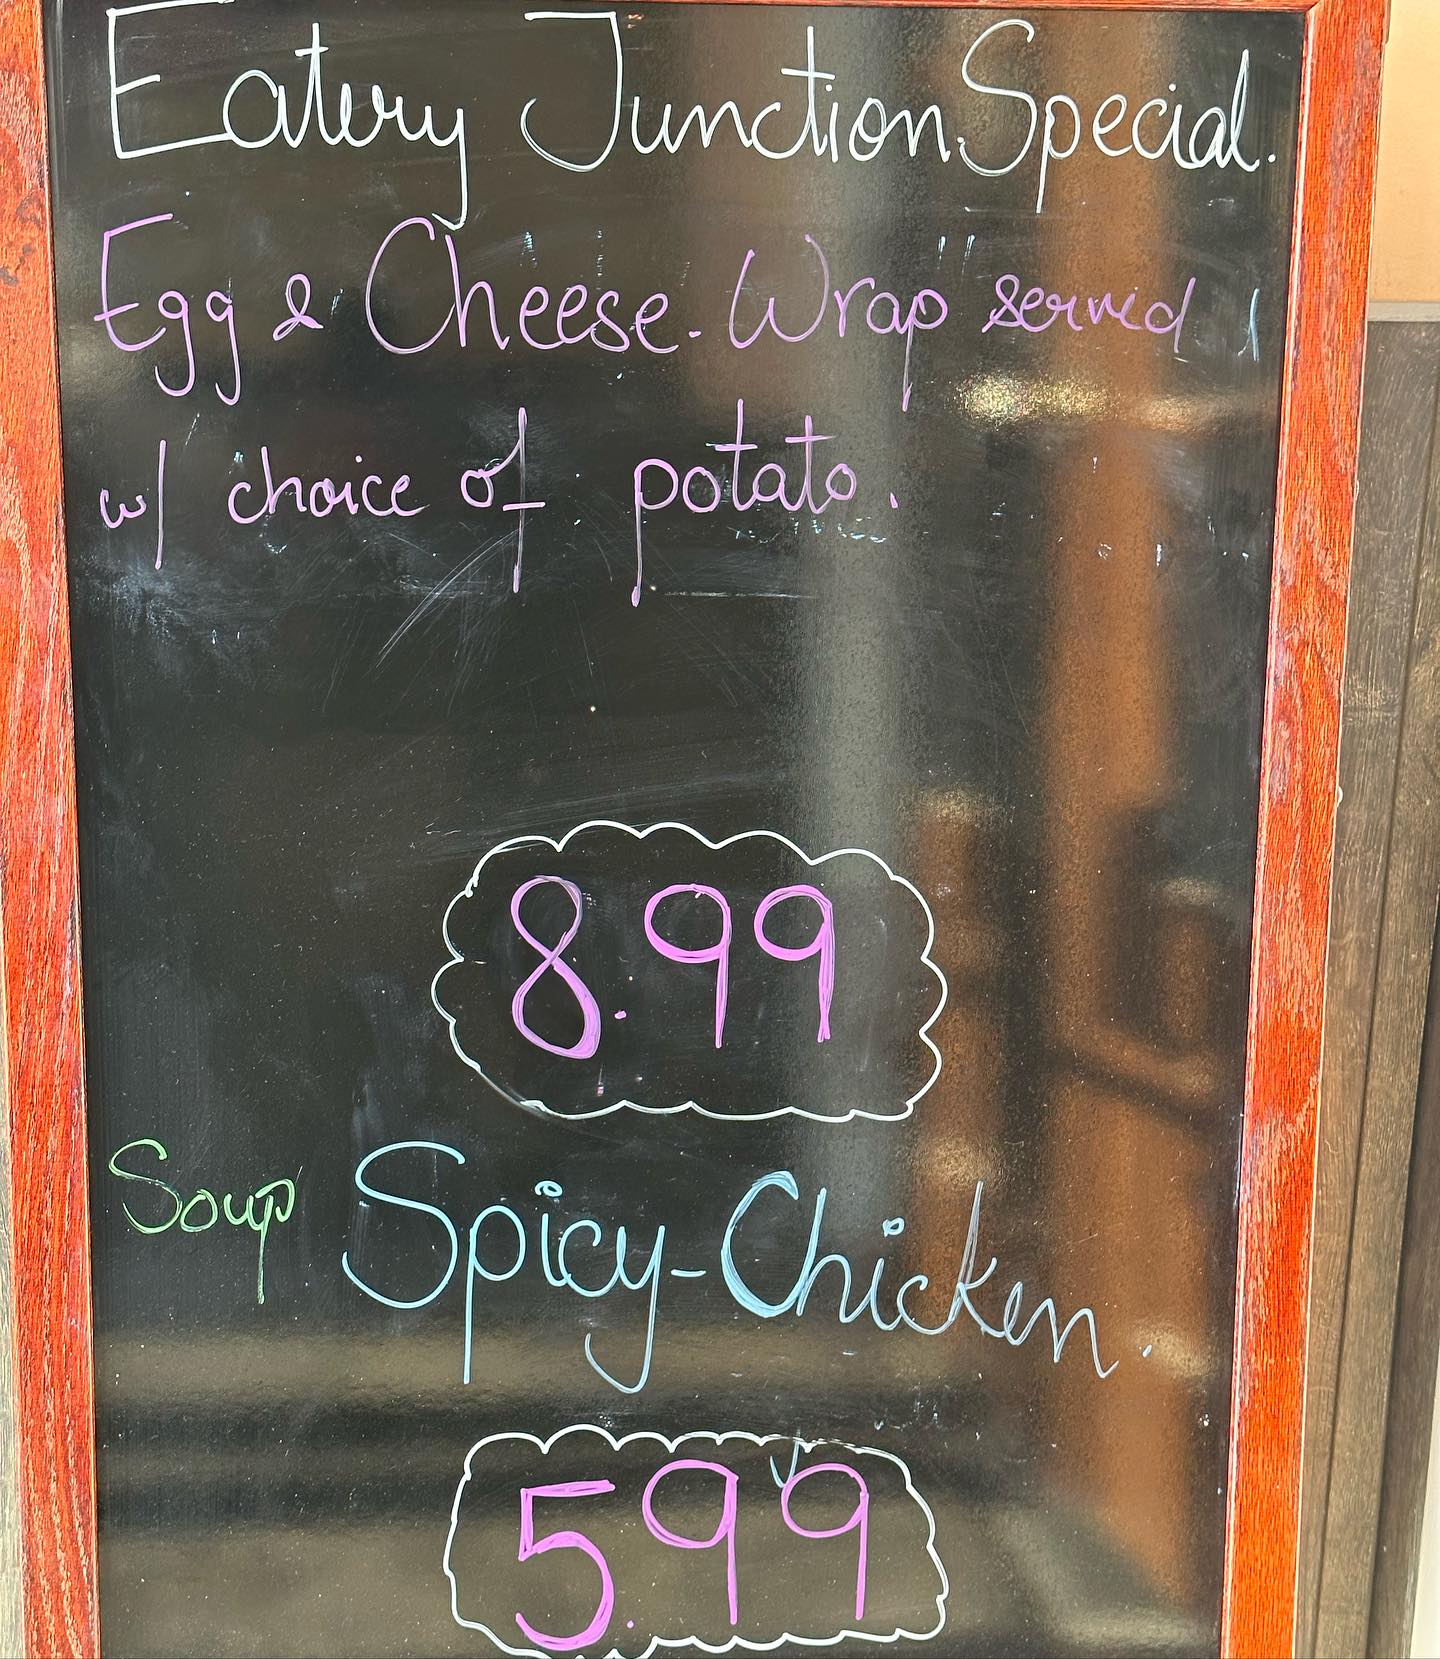 Eatery Junction Special.
Egg & Cheese. Wrap served
w/ choice of potato.
8.99
Soup Spicy-Chicken.
5.99